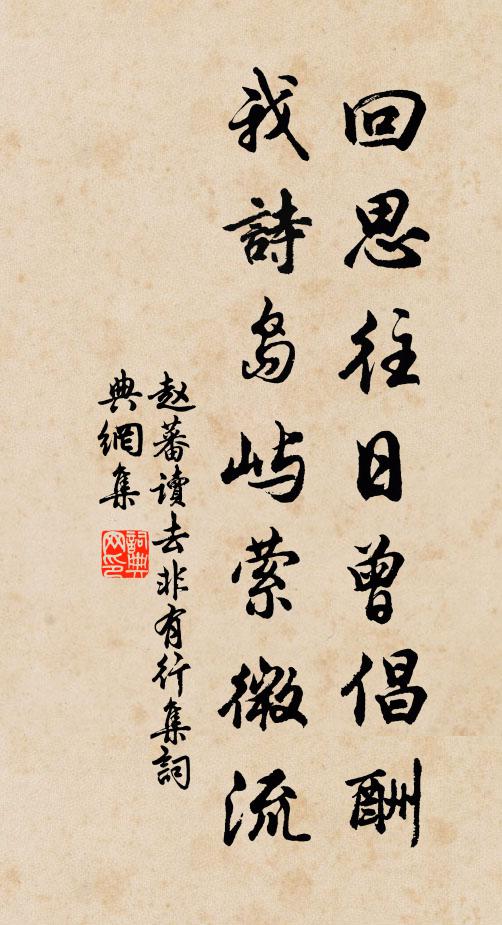 回思往日曾倡酬
我詩岛屿萦微流
赵蕃讀去非有行集詞
典網集
詞典网印